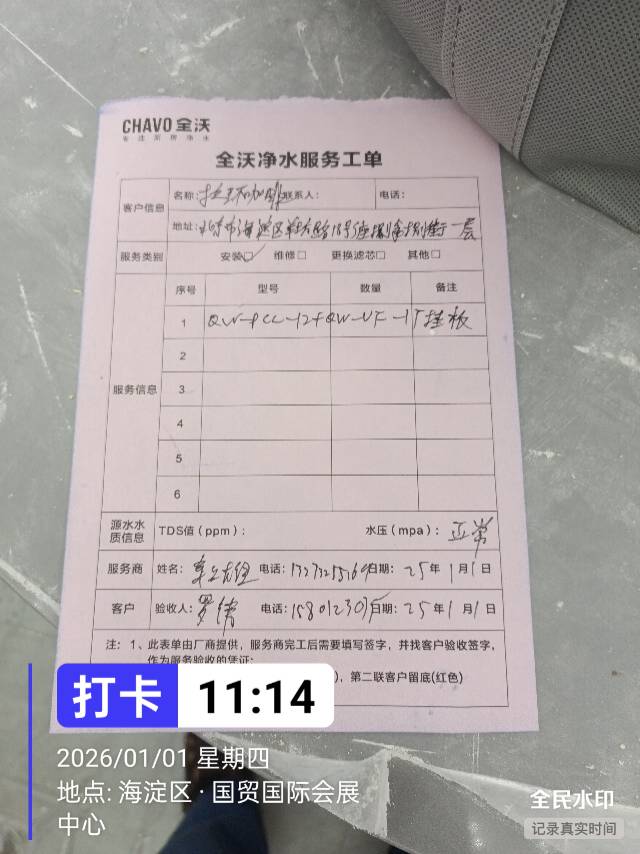 CHAVO 全沃
专注厨房净水
全沃净水服务工单
客户信息
名称: 联系人: 电话:
地址: 海淀区 18号 一层
服务类别 安装☑ 维修□ 更换滤芯□ 其他□
服务信息
序号 型号 数量 备注
1 挂板
2
3
4
5
6
源水水质信息 TDS值（ppm）: 水压（mpa）: 正常
服务商 姓名: 电话: 日期: 25年1月1日
客户 验收人: 电话: 日期: 25年1月1日
注: 1、此表单由厂商提供，服务商完工后需要填写签字，并找客户验收签字，
作为服务验收的凭证;
，第二联客户留底(红色)
打卡 11:14
2026/01/01 星期四
地点: 海淀区·国贸国际会展
中心
全民水印
记录真实时间